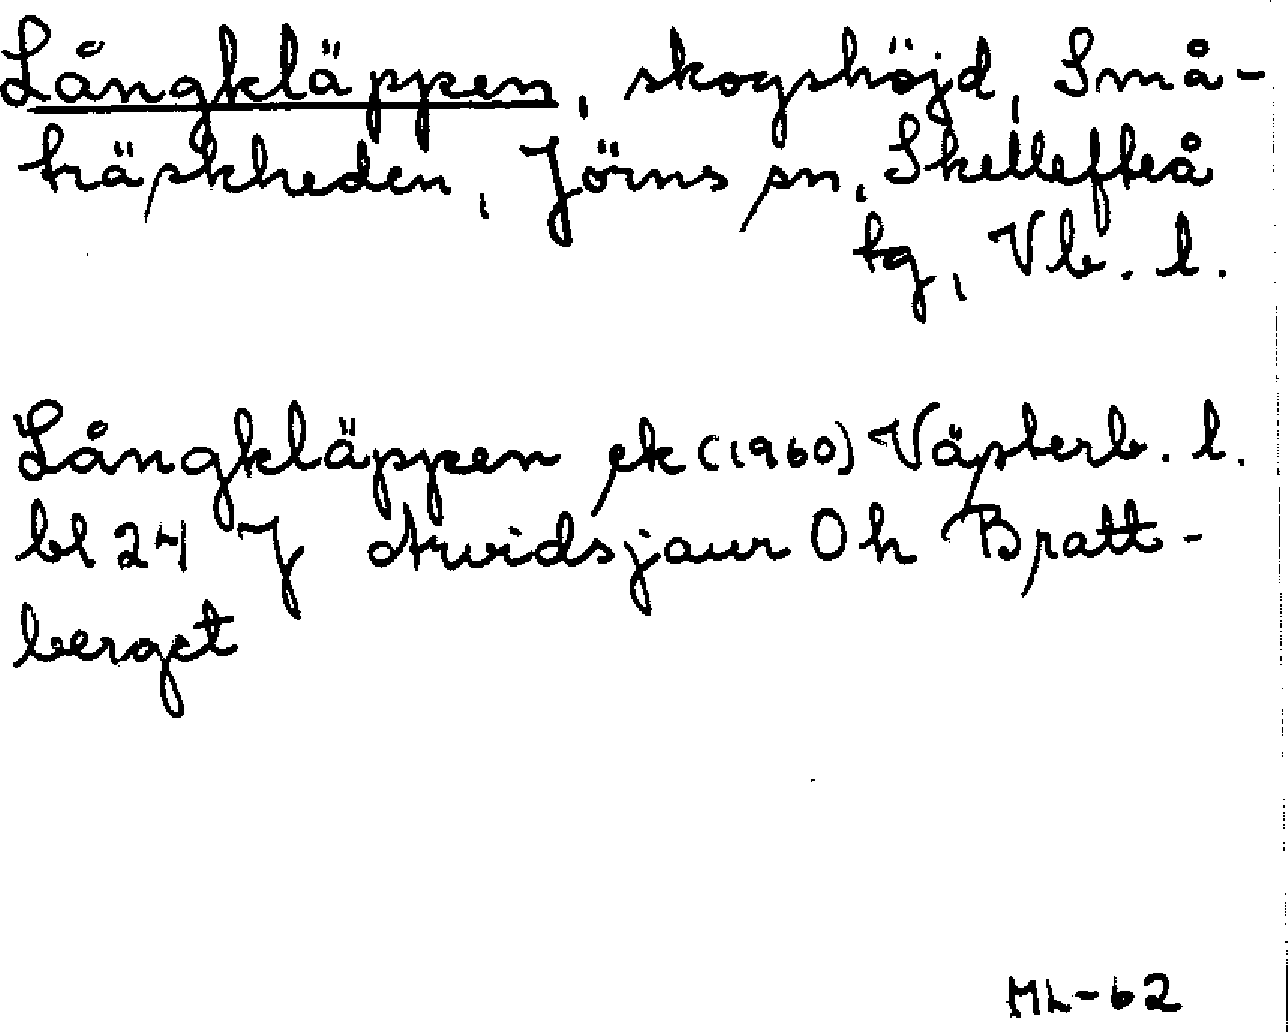 Långkläppen, skogshöjd, Små-
träskheden, Jörns sn, Skellefteå
tg, Vb. l.
Långkläppen ek (1960) Västerb. l.
bl 24 J Arvidsjaur Oh Bratt-
berget
ML-62